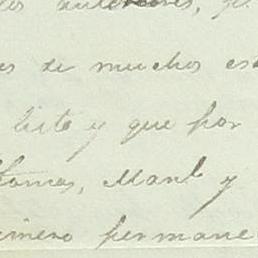 anteriores, q.
es de muchos es
lista y que por
tomas, Manl y
imero permane